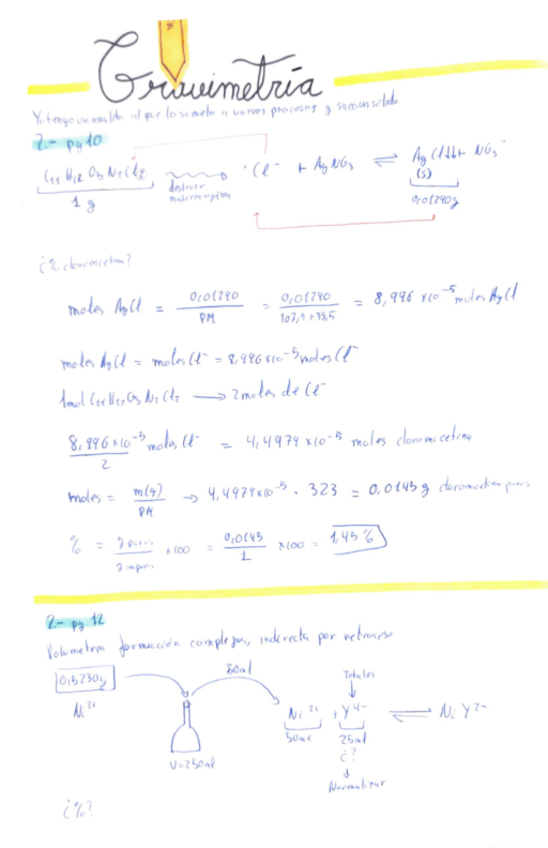 Gravimetría
Yo tengo un analito al que lo someto a varios procesos y saco un sólido
2.- pg 10
C₁₁ H₁₂ O₅ N₂ Cl₂
1 g
destruir
materia orgánica
Cl⁻ + AgNO₃ ⇌ AgCl↓↓ + NO₃⁻
(s)
0,01290g
¿% cloromicetina?
moles AgCl = 0,01290 / PM = 0,01290 / 107,9 + 35,5 = 8,996 x10⁻⁵ moles AgCl
moles AgCl = moles Cl⁻ = 8,996 x10⁻⁵ moles Cl⁻
1mol C₁₁ H₁₂ O₅ N₂ Cl₂ → 2 moles de Cl⁻
8,996 x10⁻⁵ moles Cl⁻ / 2 = 4,4979 x10⁻⁵ moles cloromicetina
moles = m(g) / PM → 4,4979x10⁻⁵ · 323 = 0,0145 g cloromicetina puros
% = g puros / g impuros x100 = 0,0145 / 1 x100 = 1,45 %
2.- pg. 12
Volumetría formación complejos, indirecta por retroceso
0,5230g
Ni²⁺
V=250ml
50ml
Totales
Ni²⁺ + Y⁴⁻ ⇌ NiY²⁻
50ml
25ml
¿?
Normalizar
¿%?